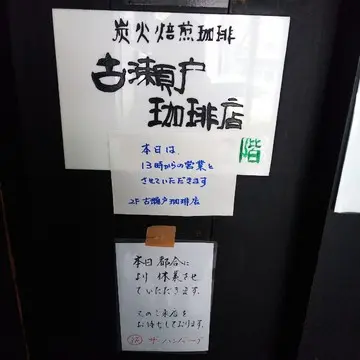 炭火焙煎珈琲
古瀬戸
珈琲店
階
本日は、
13時からの営業と
させていただきます
2F 古瀬戸珈琲店
本日 都合に
より 休業させ
ていただきます。
またのご来店を
お待ちしております。